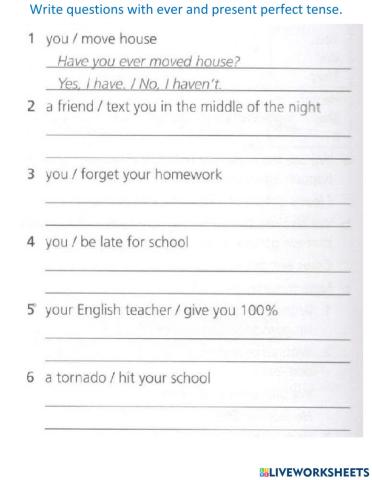 Write questions with ever and present perfect tense.
1 you / move house
Have you ever moved house?
Yes, I have. / No, I haven't.
2 a friend / text you in the middle of the night
3 you / forget your homework
4 you / be late for school
5 your English teacher / give you 100%
6 a tornado / hit your school
LIVEWORKSHEETS